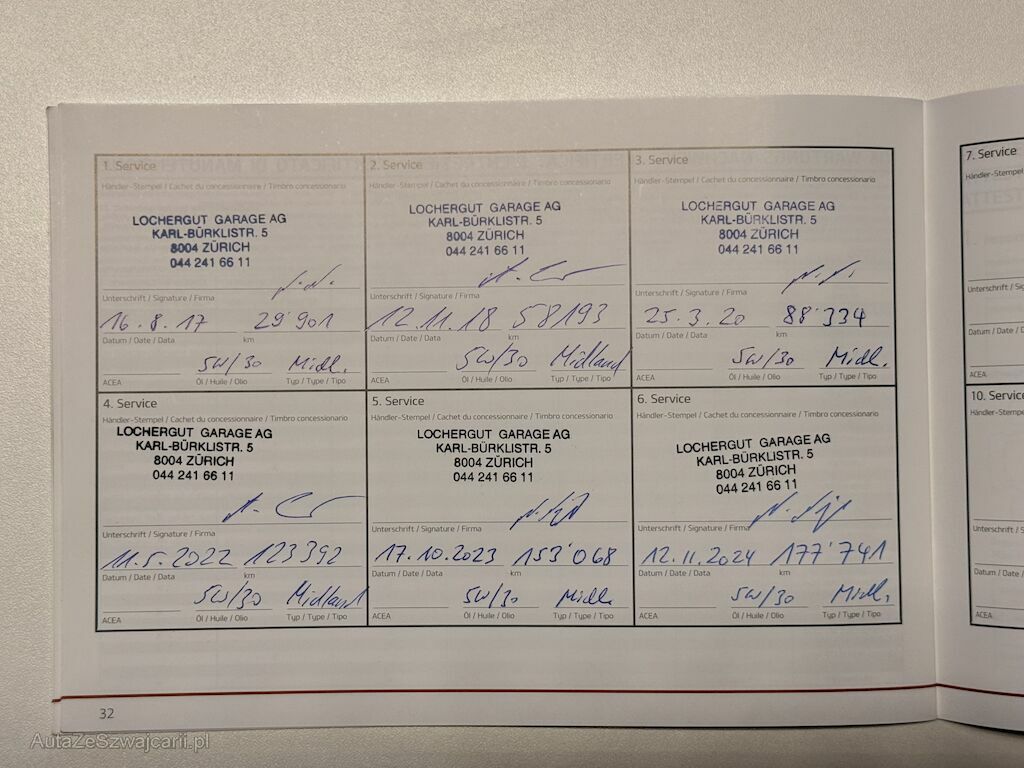 1. Service
Händler-Stempel / Cachet du concessionnaire / Timbro concessionario
LOCHERGUT GARAGE AG
KARL-BÜRKLISTR. 5
8004 ZÜRICH
044 241 66 11
Unterschrift / Signature / Firma
16.8.17 29'901
Datum / Date / Data km
5W/30 Midl.
ACEA Öl / Huile / Olio Typ / Type / Tipo
2. Service
Händler-Stempel / Cachet du concessionnaire / Timbro concessionario
LOCHERGUT GARAGE AG
KARL-BÜRKLISTR. 5
8004 ZÜRICH
044 241 66 11
Unterschrift / Signature / Firma
12.11.18 58193
Datum / Date / Data km
5W/30 Midland
ACEA Öl / Huile / Olio Typ / Type / Tipo
3. Service
Händler-Stempel / Cachet du concessionnaire / Timbro concessionario
LOCHERGUT GARAGE AG
KARL-BÜRKLISTR. 5
8004 ZÜRICH
044 241 66 11
Unterschrift / Signature / Firma
25.3.20 88'334
Datum / Date / Data km
5W/30 Midl.
ACEA Öl / Huile / Olio Typ / Type / Tipo
4. Service
Händler-Stempel / Cachet du concessionnaire / Timbro concessionario
LOCHERGUT GARAGE AG
KARL-BÜRKLISTR. 5
8004 ZÜRICH
044 241 66 11
Unterschrift / Signature / Firma
11.5.2022 123392
Datum / Date / Data km
5W/30 Midland
ACEA Öl / Huile / Olio Typ / Type / Tipo
5. Service
Händler-Stempel / Cachet du concessionnaire / Timbro concessionario
LOCHERGUT GARAGE AG
KARL-BÜRKLISTR. 5
8004 ZÜRICH
044 241 66 11
Unterschrift / Signature / Firma
17.10.2023 153'068
Datum / Date / Data km
5W/30 Midl.
ACEA Öl / Huile / Olio Typ / Type / Tipo
6. Service
Händler-Stempel / Cachet du concessionnaire / Timbro concessionario
LOCHERGUT GARAGE AG
KARL-BÜRKLISTR. 5
8004 ZÜRICH
044 241 66 11
Unterschrift / Signature / Firma
12.11.2024 177'741
Datum / Date / Data km
5W/30 Midl.
ACEA Öl / Huile / Olio Typ / Type / Tipo
32
7. Service
Händler-Stempel
Unterschrift / S
Datum / Date / D
ACEA
10. Service
Händler-Stempel
Unterschrift / S
Datum / Date / D
ACEA
AutaZeSzwajcarii.pl